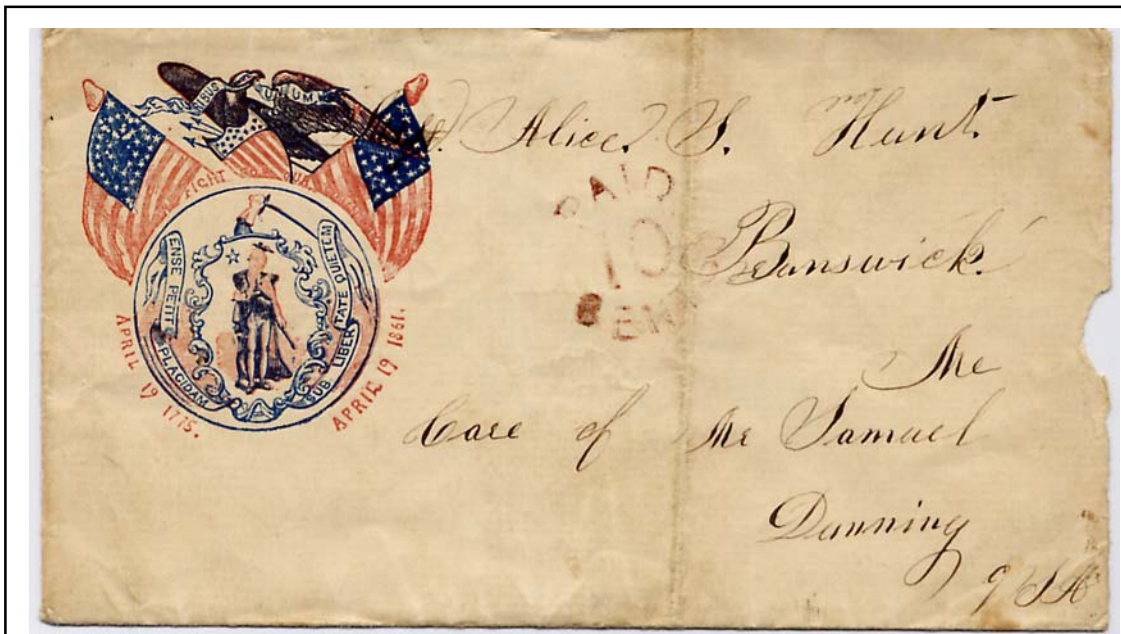 UNUM
FIGHT
ENSE PETIT
PLACIDAM
SUB LIBER
TATE QUIETEM
APRIL 19 1775.
APRIL 19 1861.
PAID
10
Alice. S. Hunt.
Bunswick.
Me
Care of Mr Samuel
Dunning